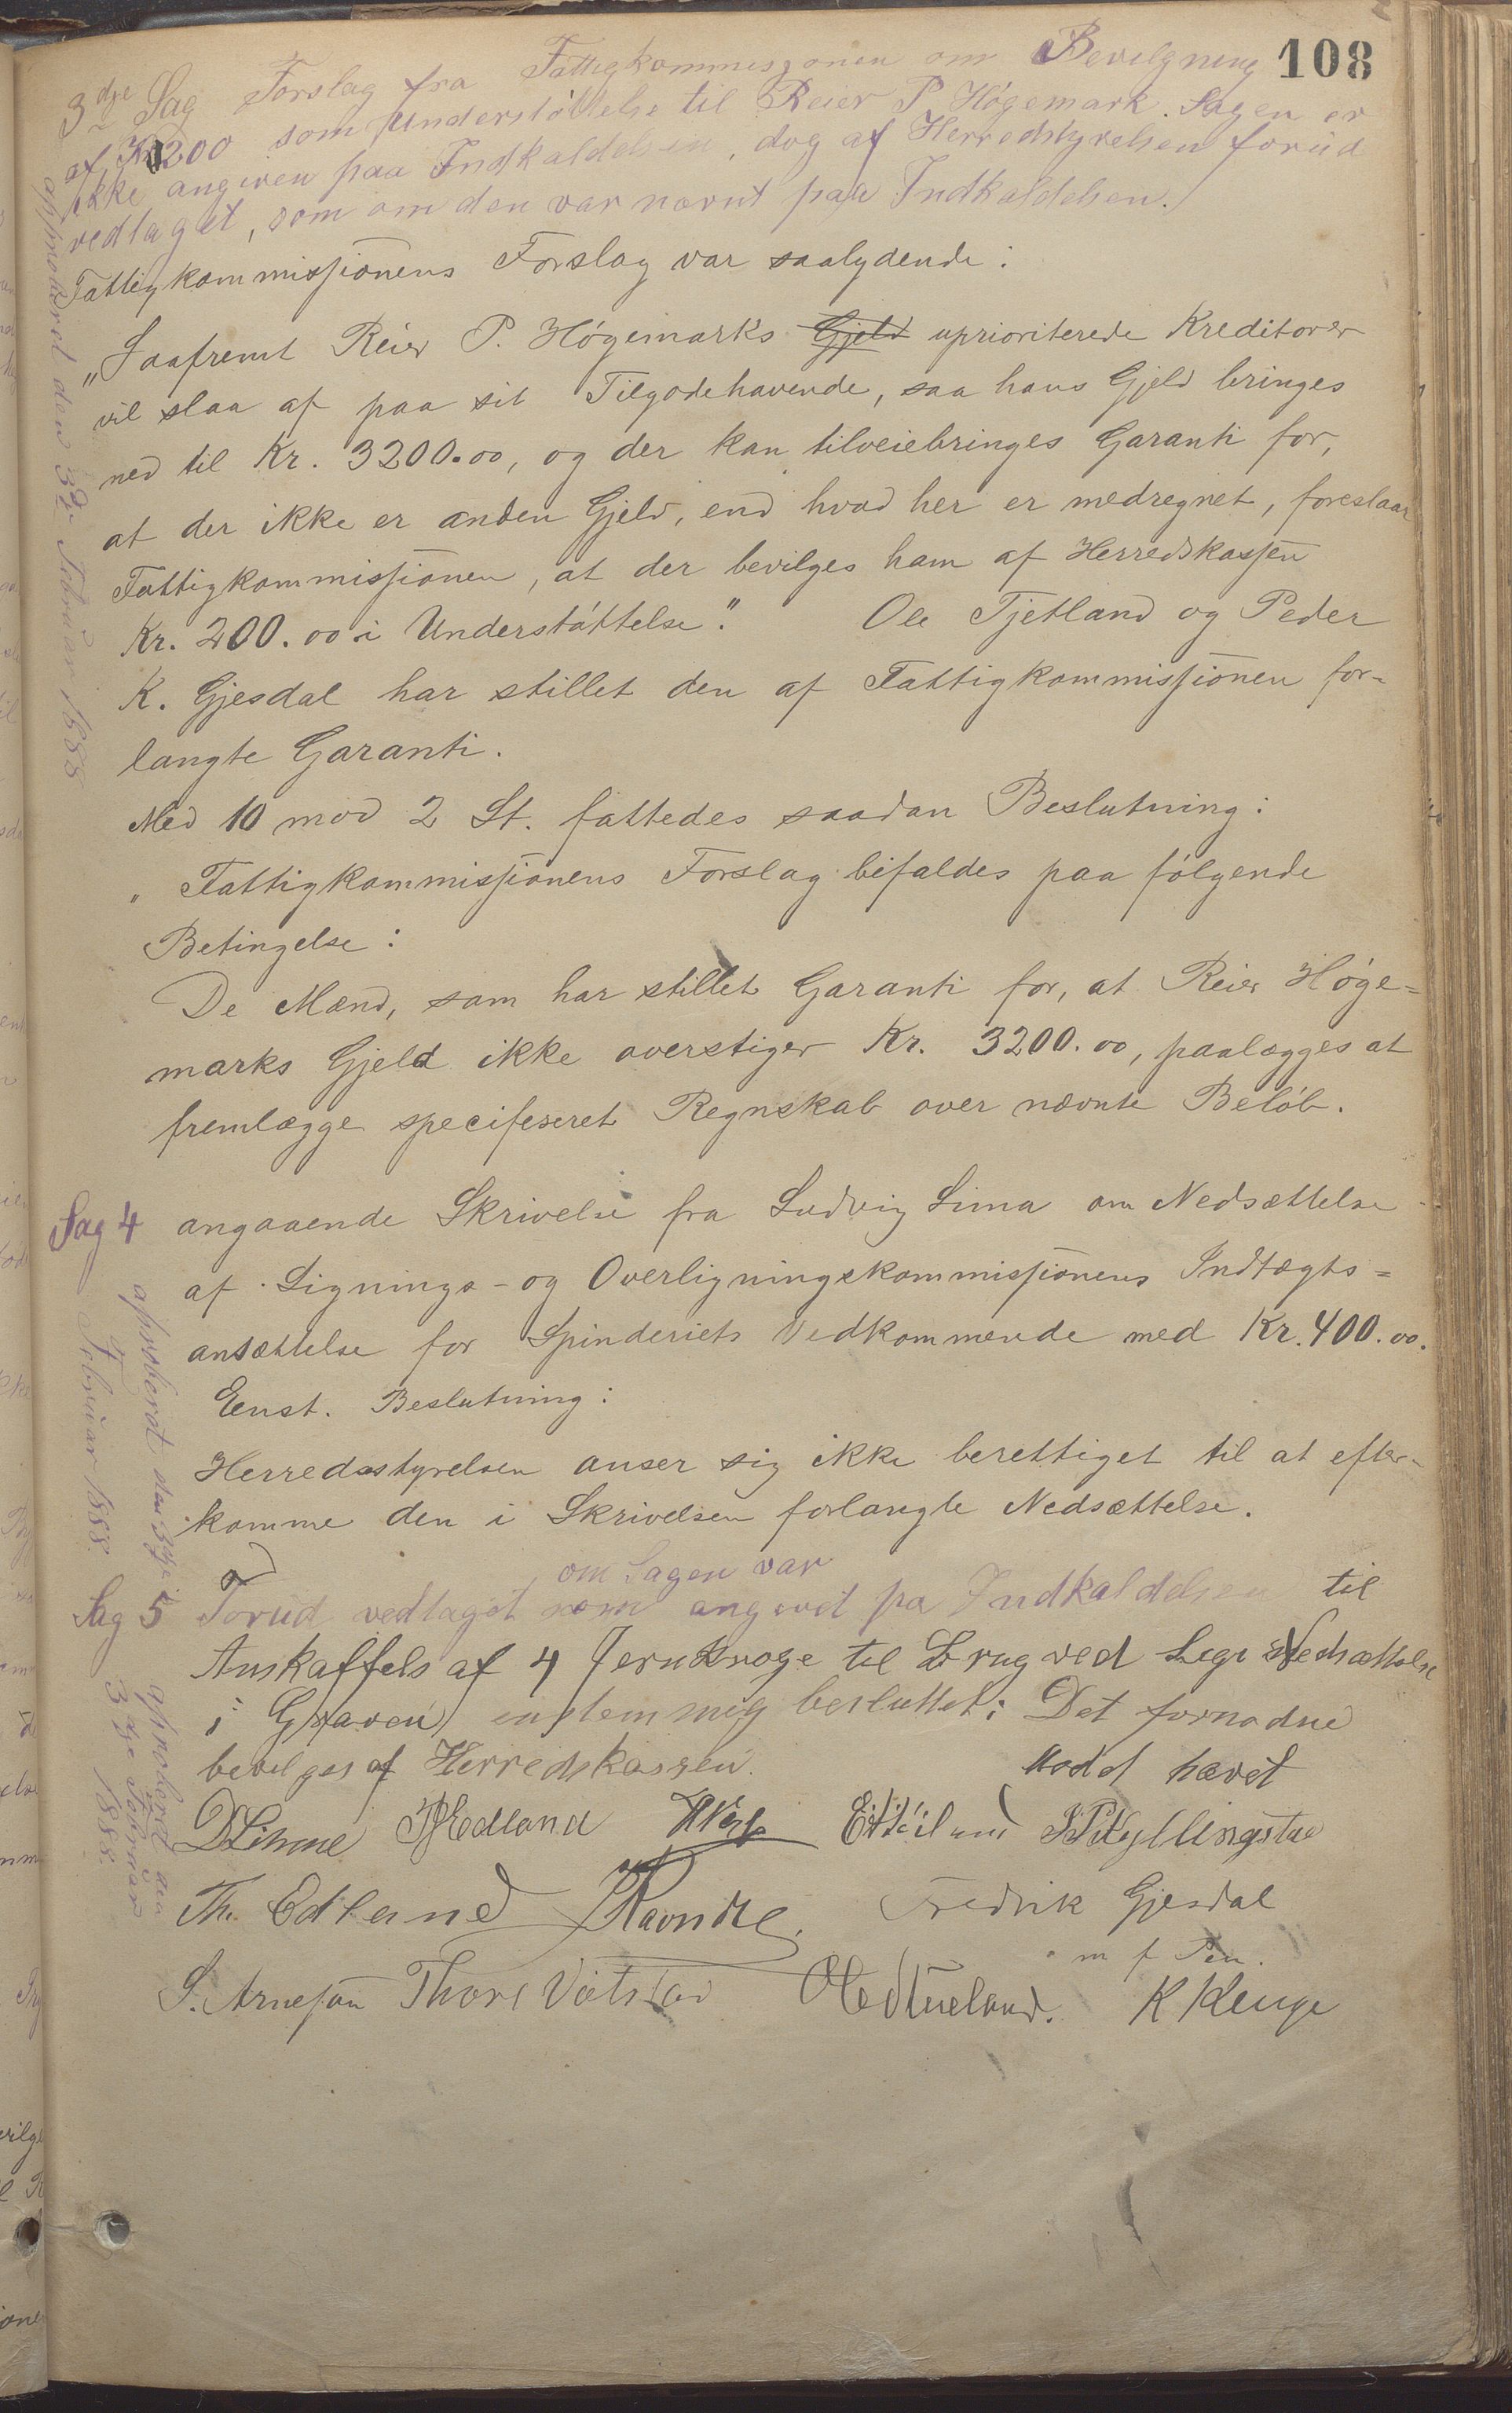 108
3dje Sag Forslag fra Fattigkommissjonen om Bevilgning
af Kr 200 som Understøttelse til Reier P. Høgemark. Sagen er
ikke angiven paa Indkaldelsen, dog af Herredstyrelsen forud
vedtaget, som om den var nævnt paa Indkaldelsen.
approberet den 3dje Februar 1888
Fattigkommissionens Forslag var saalydende:
„Saafremt Reier P. Høgemarks Gjeld uprioriterede Kreditorer
vil slaa af paa sit Tilgodehavende, saa hans Gjeld bringes
ned til Kr. 3200.00, og der kan tilveiebringes Garanti for,
at der ikke er anden Gjeld, end hvad her er medregnet, foreslaar
Fattigkommissionen, at der bevilges ham af Herredskassen
Kr. 200.00 i Understøttelse." Ole Tjetland og Peder
K. Gjesdal har stillet den af Fattigkommissionen for-
langte Garanti.
Med 10 mod 2 St. fattedes saadan Beslutning:
„Fattigkommissionens Forslag bifaldes paa følgende
Betingelse:
De Mænd, som har stillet Garanti for, at Reier Høge=
marks Gjeld ikke overstiger Kr. 3200.00, paalægges at
fremlægge specifeseret Regnskab over nævnte Beløb.
Sag 4 angaaende Skrivelse fra Ludvig Lima om Nedsættelse
af Lignings- og Overligningskommissionens Indtægts=
ansættelse for Spinderiets Vedkommende med Kr. 400.00.
Eenst. Beslutning:
Herredsstyrelsen anser sig ikke berettiget til at efter-
komme den i Skrivelsen forlangte Nedsættelse.
approberet den 3dje
Februar 1888.
om Sagen var
Sag 5 Forud vedtaget som angivet pa Indkaldelsen til
Anskaffels af 4 Jernkroge til Brug ved Ligs Nedsættelse
i Graven, enstemmig besluttet: Det fornødne
bevilges af Herredskassen. Mødet hævet
approberet den
3dje Februar
1888.
D Limme Edland E Fr P Kyllingstad
Th. Edland Ravndal. Fredrik Gjesdal
m f Pen.
S. Arnesen Thore Vatstad O Edtueland. K Kluge